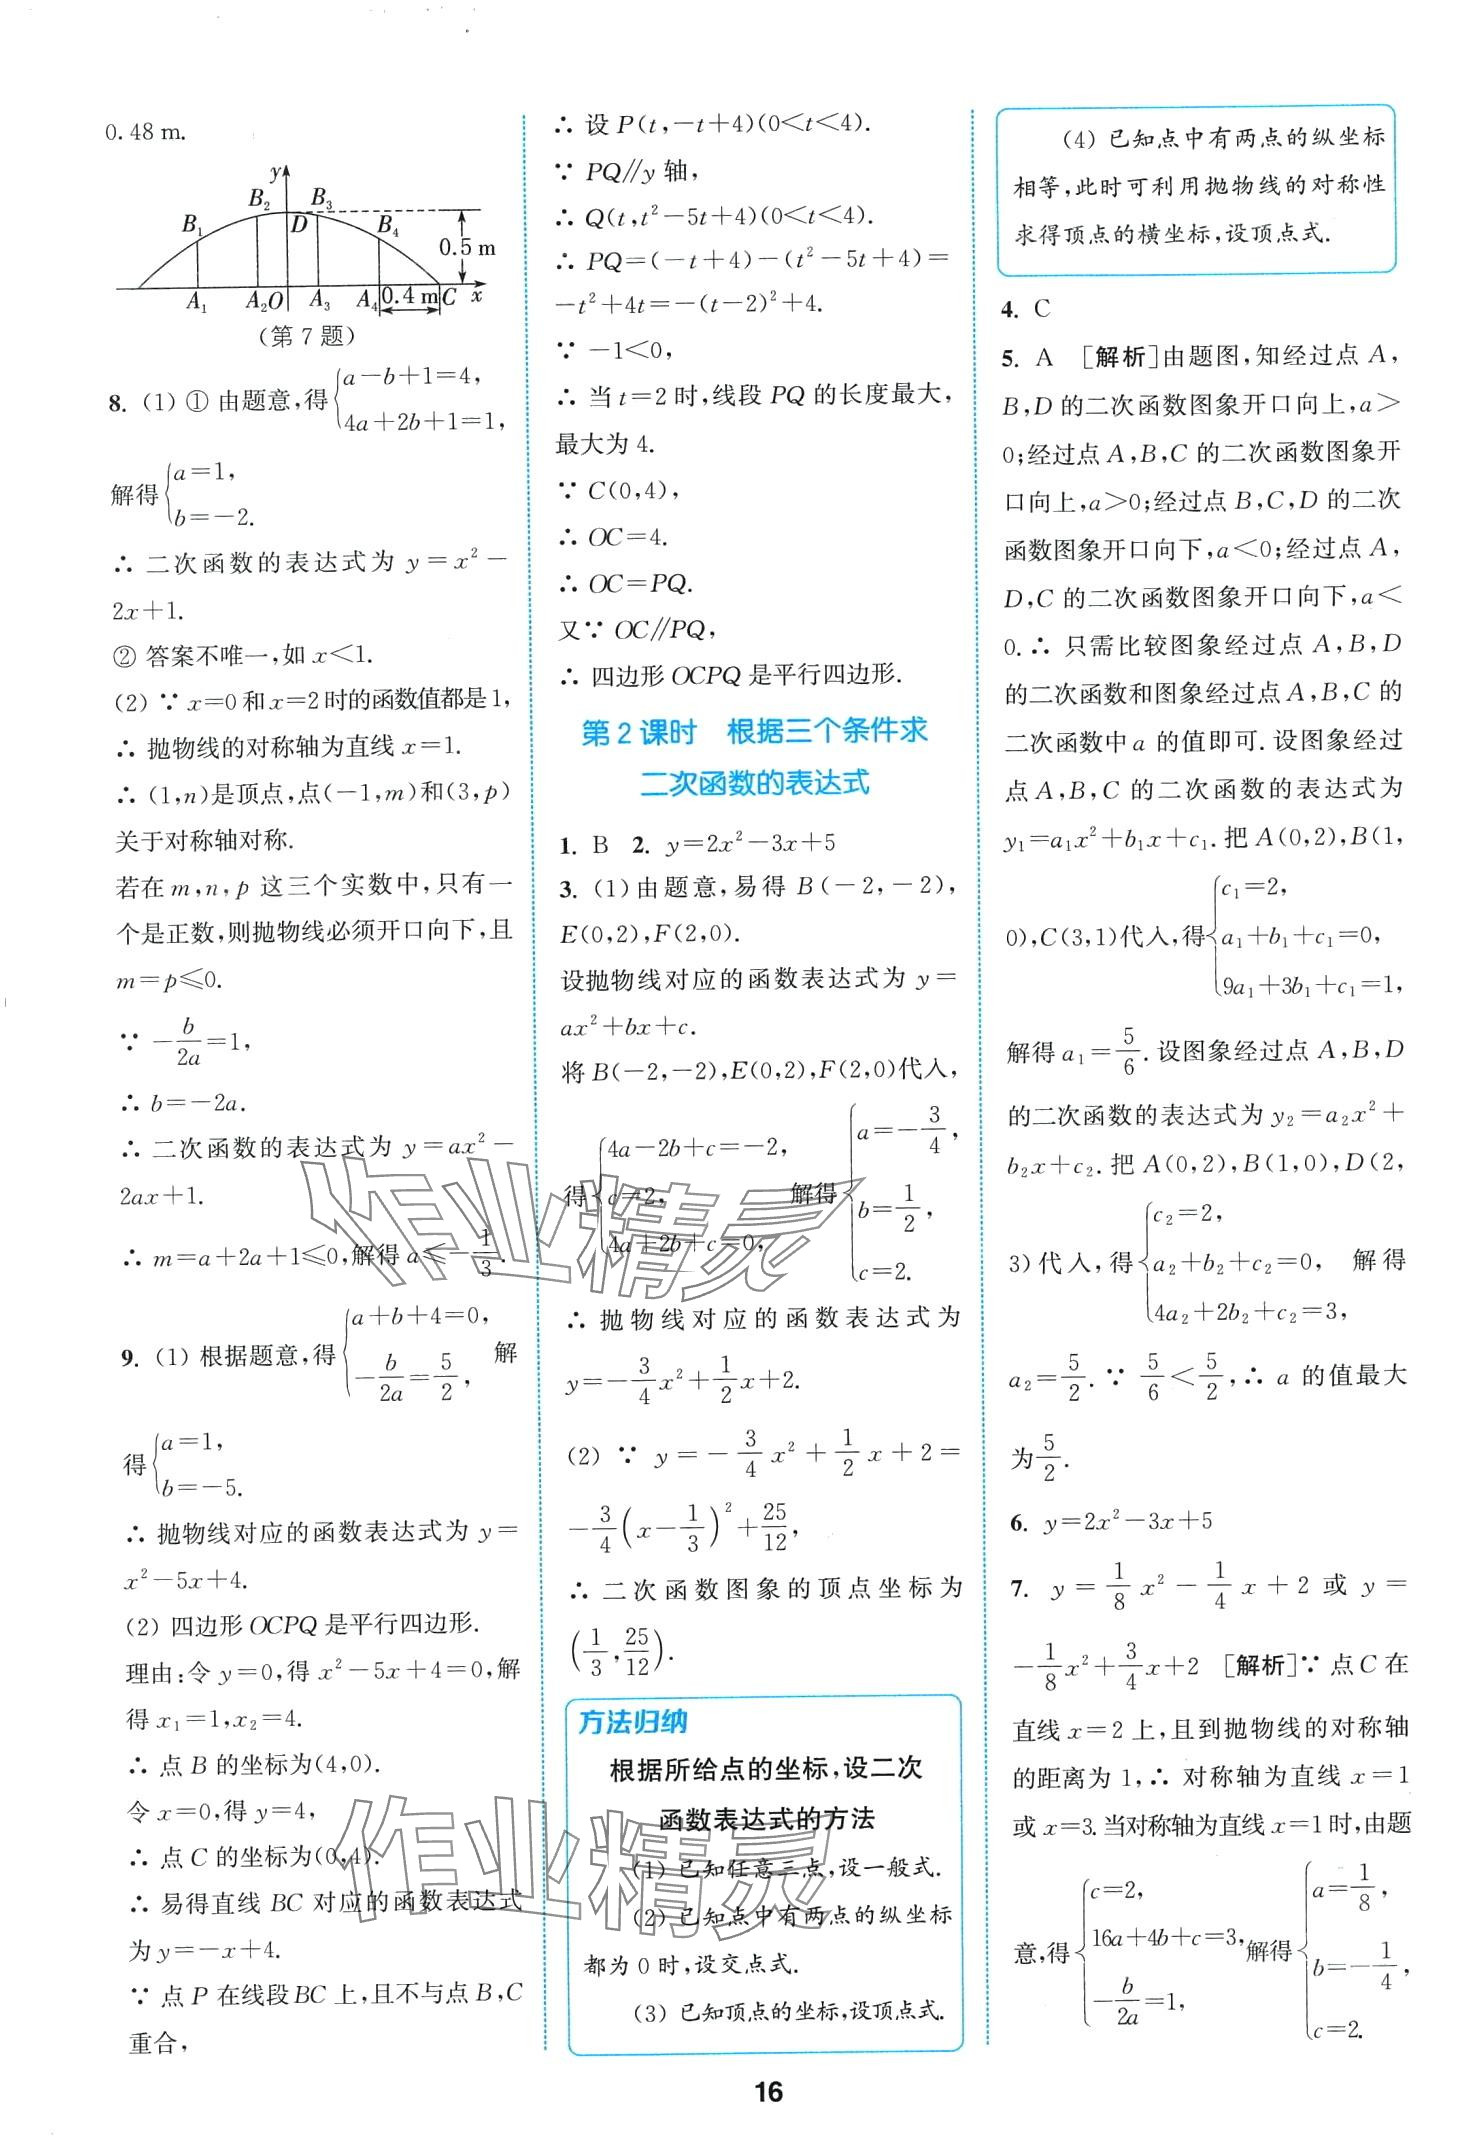 0.48 m.
y
B₂ B₃
B₁ D B₄
0.5 m
A₁ A₂O A₃ A₄ 0.4 m C x
(第 7 题)
8. (1) ① 由题意,得{a-b+1=4,
4a+2b+1=1,
解得{a=1,
b=-2.
∴ 二次函数的表达式为 y=x²-
2x+1.
② 答案不唯一,如 x<1.
(2) ∵ x=0 和 x=2 时的函数值都是 1,
∴ 抛物线的对称轴为直线 x=1.
∴ (1,n)是顶点,点(-1,m)和(3,p)
关于对称轴对称.
若在 m,n,p 这三个实数中,只有一
个是正数,则抛物线必须开口向下,且
m=p≤0.
∵ -b/2a=1,
∴ b=-2a.
∴ 二次函数的表达式为 y=ax²-
2ax+1.
∴ m=a+2a+1≤0,解得 a≤-1/3.
9. (1) 根据题意,得{a+b+4=0,
-b/2a=5/2, 解
得{a=1,
b=-5.
∴ 抛物线对应的函数表达式为 y=
x²-5x+4.
(2) 四边形 OCPQ 是平行四边形.
理由:令 y=0,得 x²-5x+4=0,解
得 x₁=1,x₂=4.
∴ 点 B 的坐标为(4,0).
令 x=0,得 y=4,
∴ 点 C 的坐标为(0,4).
∴ 易得直线 BC 对应的函数表达式
为 y=-x+4.
∵ 点 P 在线段 BC 上,且不与点 B,C
重合,
∴ 设 P(t,-t+4)(0<t<4).
∵ PQ∥y 轴,
∴ Q(t,t²-5t+4)(0<t<4).
∴ PQ=(-t+4)-(t²-5t+4)=
-t²+4t=-(t-2)²+4.
∵ -1<0,
∴ 当 t=2 时,线段 PQ 的长度最大,
最大为 4.
∵ C(0,4),
∴ OC=4.
∴ OC=PQ.
又∵ OC∥PQ,
∴ 四边形 OCPQ 是平行四边形.
第 2 课时 根据三个条件求
二次函数的表达式
1. B 2. y=2x²-3x+5
3. (1) 由题意,易得 B(-2,-2),
E(0,2),F(2,0).
设抛物线对应的函数表达式为 y=
ax²+bx+c.
将 B(-2,-2),E(0,2),F(2,0)代入,
得{4a-2b+c=-2,
c=2,
4a+2b+c=0, 解得{a=-3/4,
b=1/2,
c=2.
∴ 抛物线对应的函数表达式为
y=-3/4x²+1/2x+2.
(2) ∵ y=-3/4x²+1/2x+2=
-3/4(x-1/3)²+25/12,
∴ 二次函数图象的顶点坐标为
(1/3,25/12).
方法归纳
根据所给点的坐标,设二次
函数表达式的方法
(1) 已知任意三点,设一般式.
(2) 已知点中有两点的纵坐标
都为 0 时,设交点式.
(3) 已知顶点的坐标,设顶点式.
(4) 已知点中有两点的纵坐标
相等,此时可利用抛物线的对称性
求得顶点的横坐标,设顶点式.
4. C
5. A [解析]由题图,知经过点 A,
B,D 的二次函数图象开口向上,a>
0;经过点 A,B,C 的二次函数图象开
口向上,a>0;经过点 B,C,D 的二次
函数图象开口向下,a<0;经过点 A,
D,C 的二次函数图象开口向下,a<
0.∴ 只需比较图象经过点 A,B,D
的二次函数和图象经过点 A,B,C 的
二次函数中 a 的值即可.设图象经过
点 A,B,C 的二次函数的表达式为
y₁=a₁x²+b₁x+c₁.把 A(0,2),B(1,
0),C(3,1)代入,得{c₁=2,
a₁+b₁+c₁=0,
9a₁+3b₁+c₁=1,
解得 a₁=5/6.设图象经过点 A,B,D
的二次函数的表达式为 y₂=a₂x²+
b₂x+c₂.把 A(0,2),B(1,0),D(2,
3)代入,得{c₂=2,
a₂+b₂+c₂=0,
4a₂+2b₂+c₂=3, 解得
a₂=5/2.∵ 5/6<5/2,∴ a 的值最大
为5/2.
6. y=2x²-3x+5
7. y=1/8x²-1/4x+2 或 y=
-1/8x²+3/4x+2 [解析]∵ 点 C 在
直线 x=2 上,且到抛物线的对称轴
的距离为 1,∴ 对称轴为直线 x=1
或 x=3.当对称轴为直线 x=1 时,由题
意,得{c=2,
16a+4b+c=3,
-b/2a=1, 解得{a=1/8,
b=-1/4,
c=2.
作业精灵
作业精灵
16